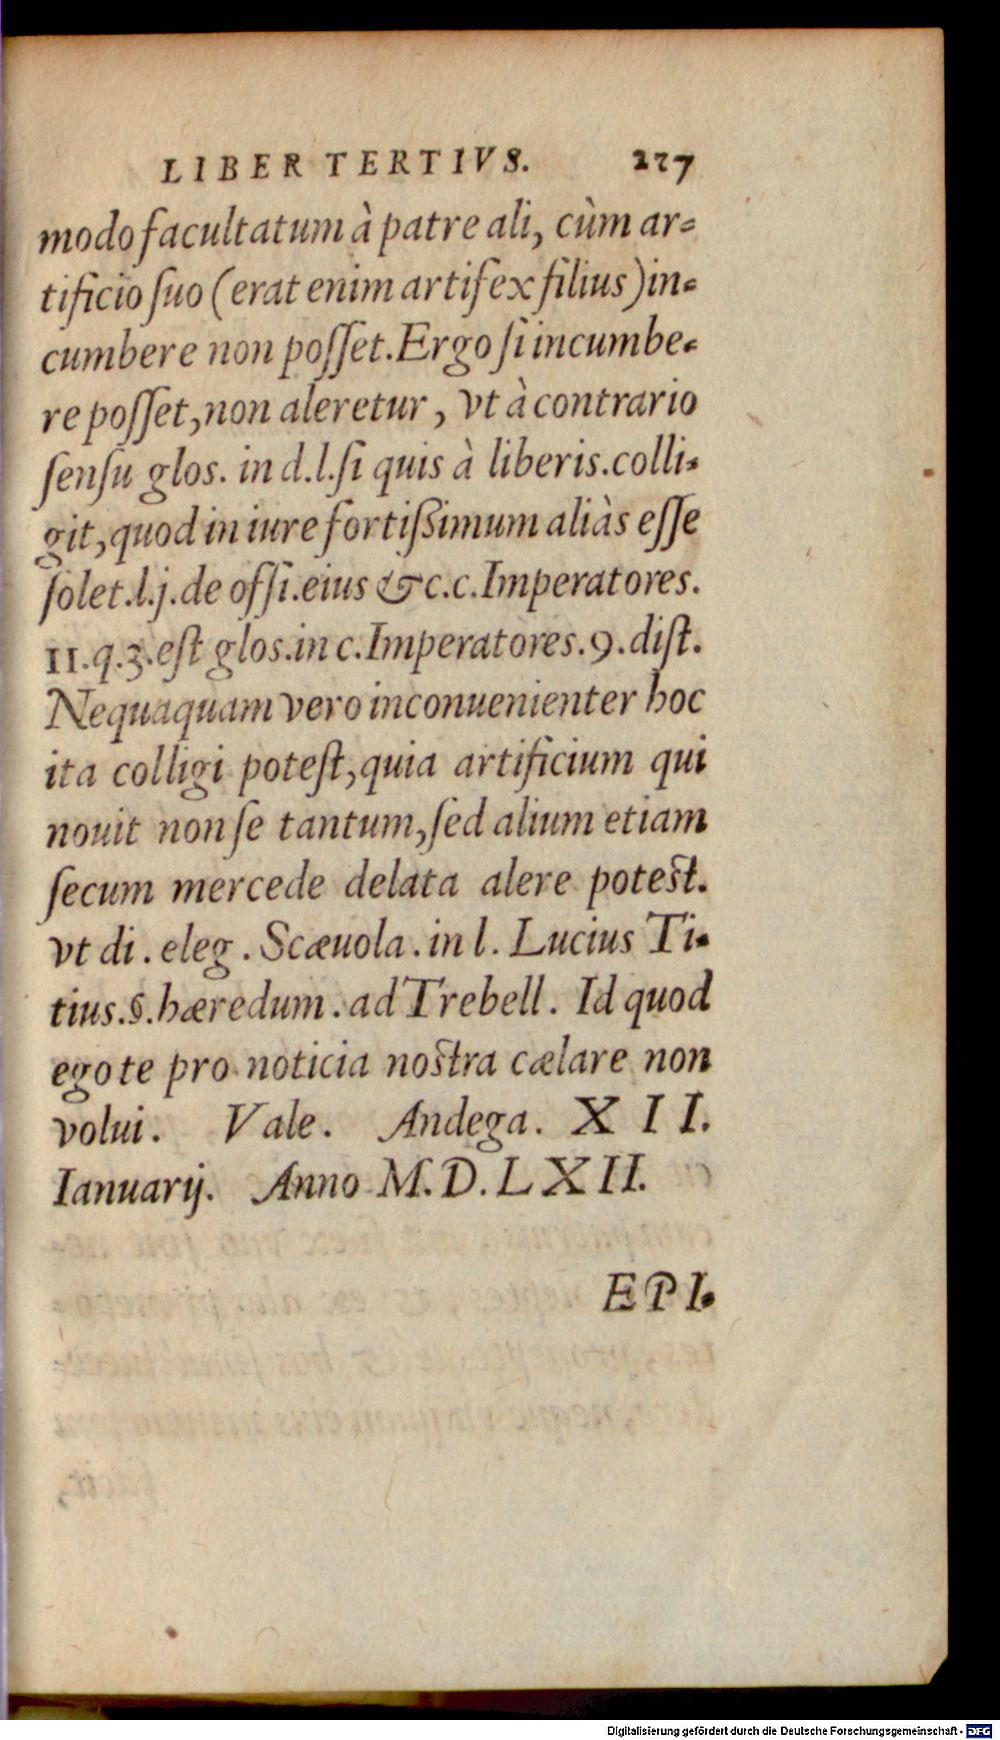 LIBER TERTIVS. 227
modo facultatum à patre ali, cùm ar-
tificio ſuo (erat enim artifex filius) in-
cumbere non poſſet. Ergo ſi incumbe-
re poſſet, non aleretur, vt à contrario
ſenſu gloſ. in d.l. ſi quis à liberis. colli-
git, quod in iure fortiſſimum aliàs eſſe
ſolet. l.j. de offi. eius &c. c. Imperatores.
11.q.3. eſt gloſ. in c. Imperatores. 9. diſt.
Nequaquam vero inconuenienter hoc
ita colligi poteſt, quia artificium qui
nouit non ſe tantum, ſed alium etiam
ſecum mercede delata alere poteſt.
vt di. eleg. Scæuola. in l. Lucius Ti-
tius. §. hæredum. ad Trebell. Id quod
ego te pro noticia noſtra cælare non
volui. Vale. Andega. XII.
Ianuarij. Anno M.D.LXII.
EPI-
Digitalisierung gefördert durch die Deutsche Forschungsgemeinschaft - DFG